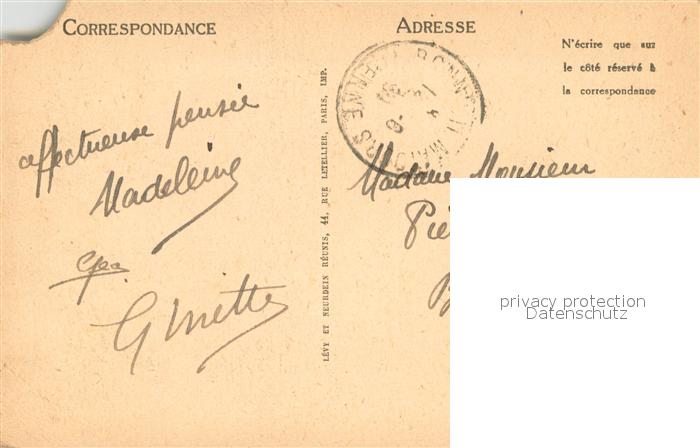 CORRESPONDANCE
affectueuse pensée
Madeleine
Ginette
LÉVY ET NEURDEIN RÉUNIS, 44, RUE LETELLIER, PARIS, IMP.
ADRESSE
N'écrire que sur
le côté réservé à
la correspondance
Madame Monsieur
privacy protection
Datenschutz